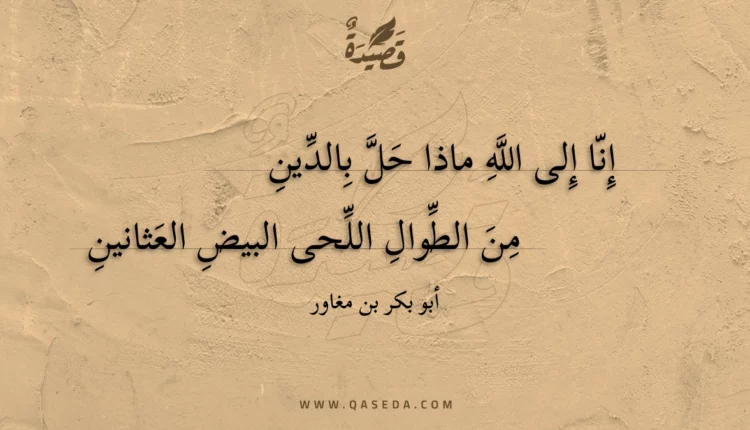 قَصِيْدَةٌ
إِنّا إِلى اللَّهِ ماذا حَلَّ بِالدِّينِ
مِنَ الطِّوالِ اللِّحى البيضِ العَثانينِ
أبو بكر بن مغاور
WWW.QASEDA.COM